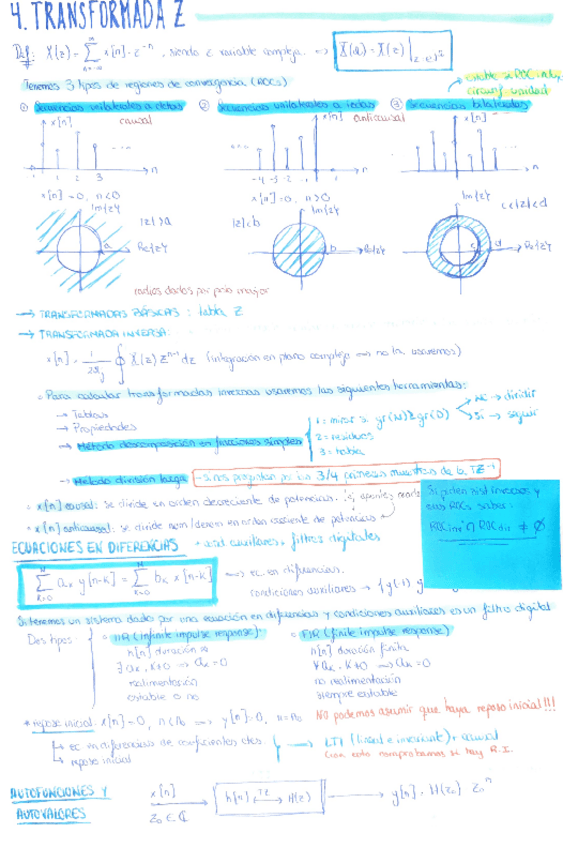 4. TRANSFORMADA Z
Def: X(z) = Σ x[n]·z⁻ⁿ, siendo z variable compleja. ⇒ X(Ω) = X(z)|z=e^jΩ
n=-∞
Tenemos 3 tipos de regiones de convergencia (ROCs)
estable si ROC incluye
circunf. unidad
① Secuencias unilaterales a dchas ② Secuencias unilaterales a izdas ③ Secuencias bilaterales
x[n] causal x[n] anticausal x[n]
1 2 3 ... n
-4 -3 -2 -1 n
n
x[n]=0, n<0 x[n]=0, n>0
Im{z} |z|>a a Re{z}
|z|<b Im{z} b Re{z}
Im{z} c<|z|<d c d Re{z}
radios dados por polo mayor
→ TRANSFORMADAS BÁSICAS: tabla Z
→ TRANSFORMADA INVERSA:
x[n] = 1/2πj ∮ X(z) zⁿ⁻¹ dz (integración en plano complejo ⇒ no la usaremos)
∘ Para calcular transformadas inversas usaremos las siguientes herramientas:
→ Tablas
→ Propiedades
→ Método descomposición en fracciones simples
1 = mirar si gr(N)≥gr(D)
No → dividir
Si → seguir
2 = residuos
3 = tabla
→ Método división larga → si nos preguntan por las 3/4 primeras muestras de la TZ⁻¹
∘ x[n] causal: se divide en orden decreciente de potencias.
∘ x[n] anticausal: se divide num/denom en orden creciente de potencias
Si piden sist inverso y
sus ROCs saber:
ROCinv ∩ ROCdir ≠ Ø
ECUACIONES EN DIFERENCIAS + cond auxiliares = filtros digitales
Σ aₖ y[n-k] = Σ bₖ x[n-k] ⇒ ec. en diferencias.
k=0 k=0
condiciones auxiliares → {y[-1] y
Si tenemos un sistema dado por una ecuación en diferencias y condiciones auxiliares es un filtro digital
Dos tipos:
∘ IIR (infinite impulse response)
h[n] duración ∞
realimentación
estable o no
∘ FIR (finite impulse response)
h[n] duración finita
∀aₖ, k≠0 ⇒ aₖ=0
no realimentación
siempre estable
* reposo inicial: x[n]=0, n<n₀ ⇒ y[n]=0, n<n₀ NO podemos asumir que haya reposo inicial!!!
↳ ec en diferencias de coeficientes ctes.
↳ reposo inicial
→ LTI (lineal e invariante) + causal
(con esto comprobamos si hay R.I.
AUTOFUNCIONES Y
AUTOVALORES
x[n]
z₀ ∈ ℂ
h[n] ←TZ→ H(z)
y[n] = H(z₀) z₀ⁿ